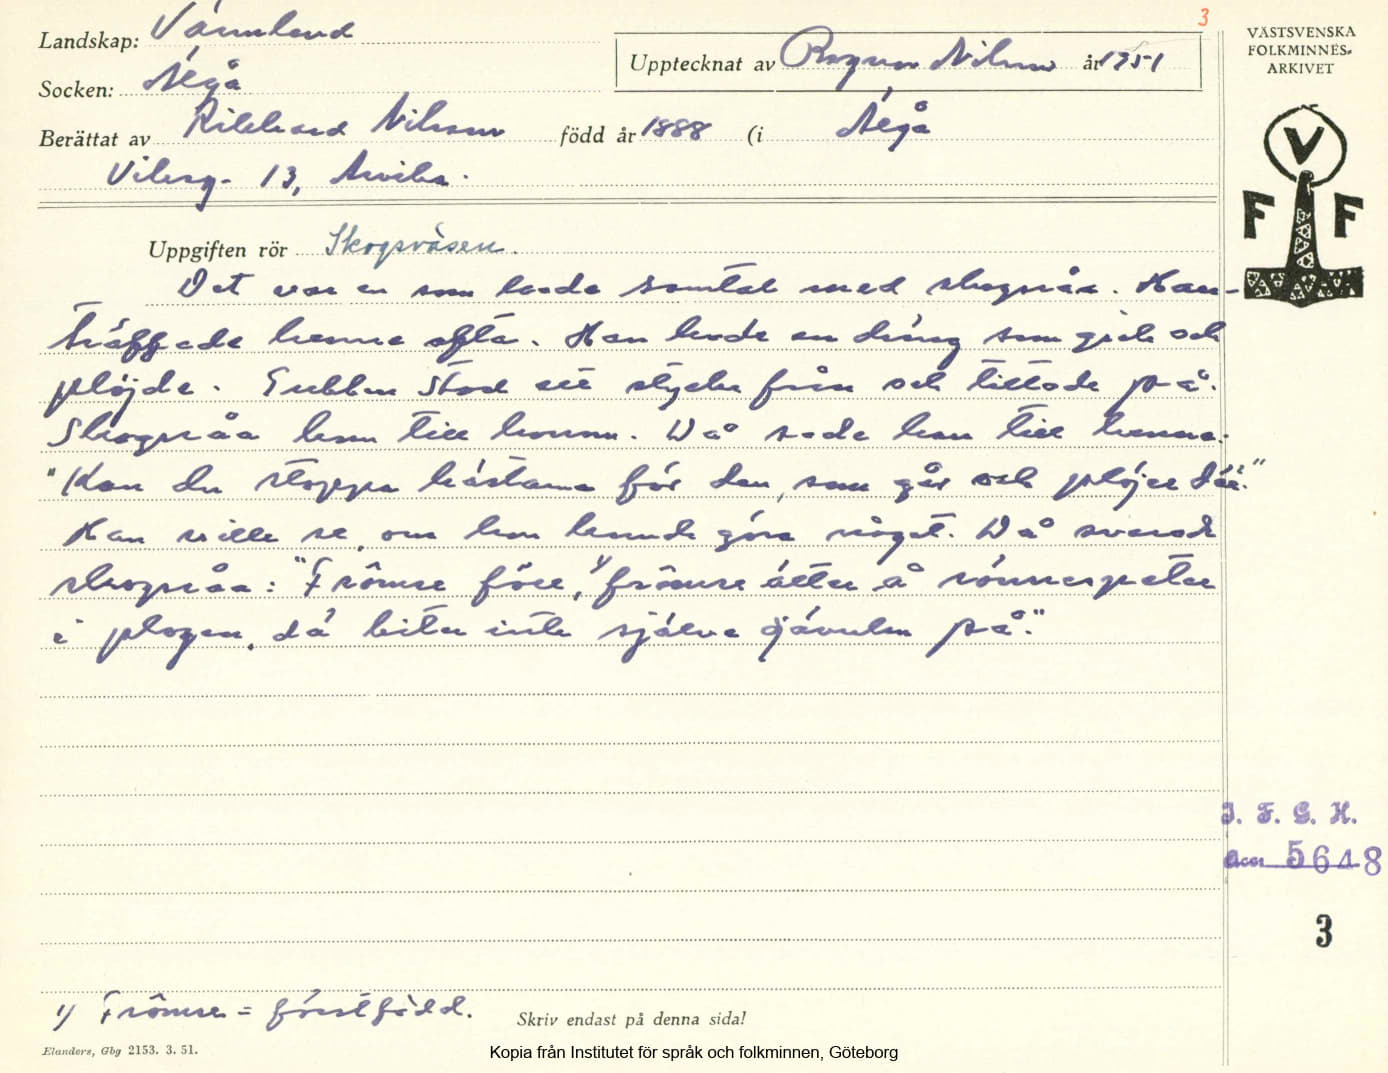 3
Landskap: Värmland
Upptecknat av Ragnar Nilsson år 1951
Socken: Älgå
Berättat av Rikhard Nilsson född år 1888 (i Älgå
Vikeng. 13, Arvika.
VÄSTSVENSKA
FOLKMINNES-
ARKIVET
V
F F
Uppgiften rör Skogsväsen.
Det var en som hade samtal med skogsråa. Han
träffade henne ofta. Han hade en dräng som gick och
plöjde. Gubben stod ett stycke från och tittade på.
Skogsråa kom till honom. Då sade han till henne:
"Kan du stoppa hästarna för den, som går och plöjer där."
Han ville se, om hon kunde göra något. Då svarade
skogsråa: "Frômse före,¹⁾ frômse ätter å rönnespeter
i plogen, då biter inte själve djävulen på."
I. F. G. H.
acc 5648
3
1) Frômse = förstfödd.
Skriv endast på denna sida!
Elanders, Gbg 2153. 3. 51.
Kopia från Institutet för språk och folkminnen, Göteborg